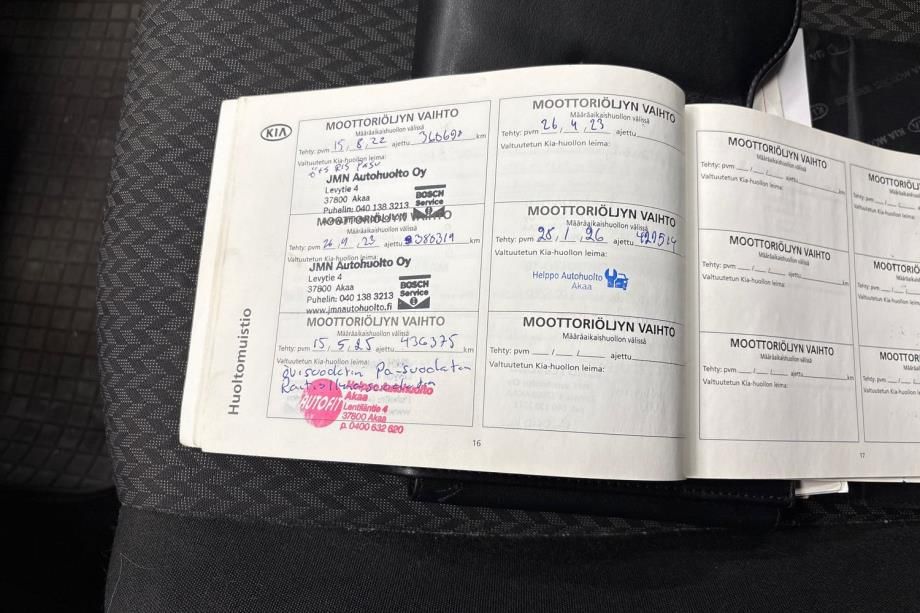 KIA
MOOTTORIÖLJYN VAIHTO
Määräaikaishuollon välissä
Tehty: pvm 15, 8, 22 ajettu 360690 km
Valtuutetun Kia-huollon leima:
JMN Autohuolto Oy
Levytie 4
37800 Akaa
Puhelin: 040 138 3213
BOSCH
Service
MOOTTORIÖLJYN VAIHTO
Määräaikaishuollon välissä
Tehty: pvm 26, 9, 23 ajettu 380319 km
Valtuutetun Kia-huollon leima:
JMN Autohuolto Oy
Levytie 4
37800 Akaa
Puhelin: 040 138 3213
www.jmnautohuolto.fi
BOSCH
Service
MOOTTORIÖLJYN VAIHTO
Määräaikaishuollon välissä
Tehty: pvm 15, 5, 25 ajettu 436375 km
Valtuutetun Kia-huollon leima:
AUTOFIT
Akaa
Lentiläntie 4
37800 Akaa
p. 0400 632 620
MOOTTORIÖLJYN VAIHTO
Määräaikaishuollon välissä
Tehty: pvm 26, 4, 23 ajettu km
Valtuutetun Kia-huollon leima:
MOOTTORIÖLJYN VAIHTO
Määräaikaishuollon välissä
Tehty: pvm 28, 1, 26 ajettu km
Valtuutetun Kia-huollon leima:
Helppo Autohuolto
Akaa
MOOTTORIÖLJYN VAIHTO
Määräaikaishuollon välissä
Tehty: pvm / / ajettu km
Valtuutetun Kia-huollon leima:
Huoltomuistio
16
MOOTTORIÖLJYN VAIHTO
Määräaikaishuollon välissä
Tehty: pvm / / ajettu km
Valtuutetun Kia-huollon leima:
MOOTTORIÖLJYN VAIHTO
Määräaikaishuollon välissä
Tehty: pvm / / ajettu km
Valtuutetun Kia-huollon leima:
MOOTTORIÖLJYN VAIHTO
Määräaikaishuollon välissä
Tehty: pvm / / ajettu km
Valtuutetun Kia-huollon leima:
17